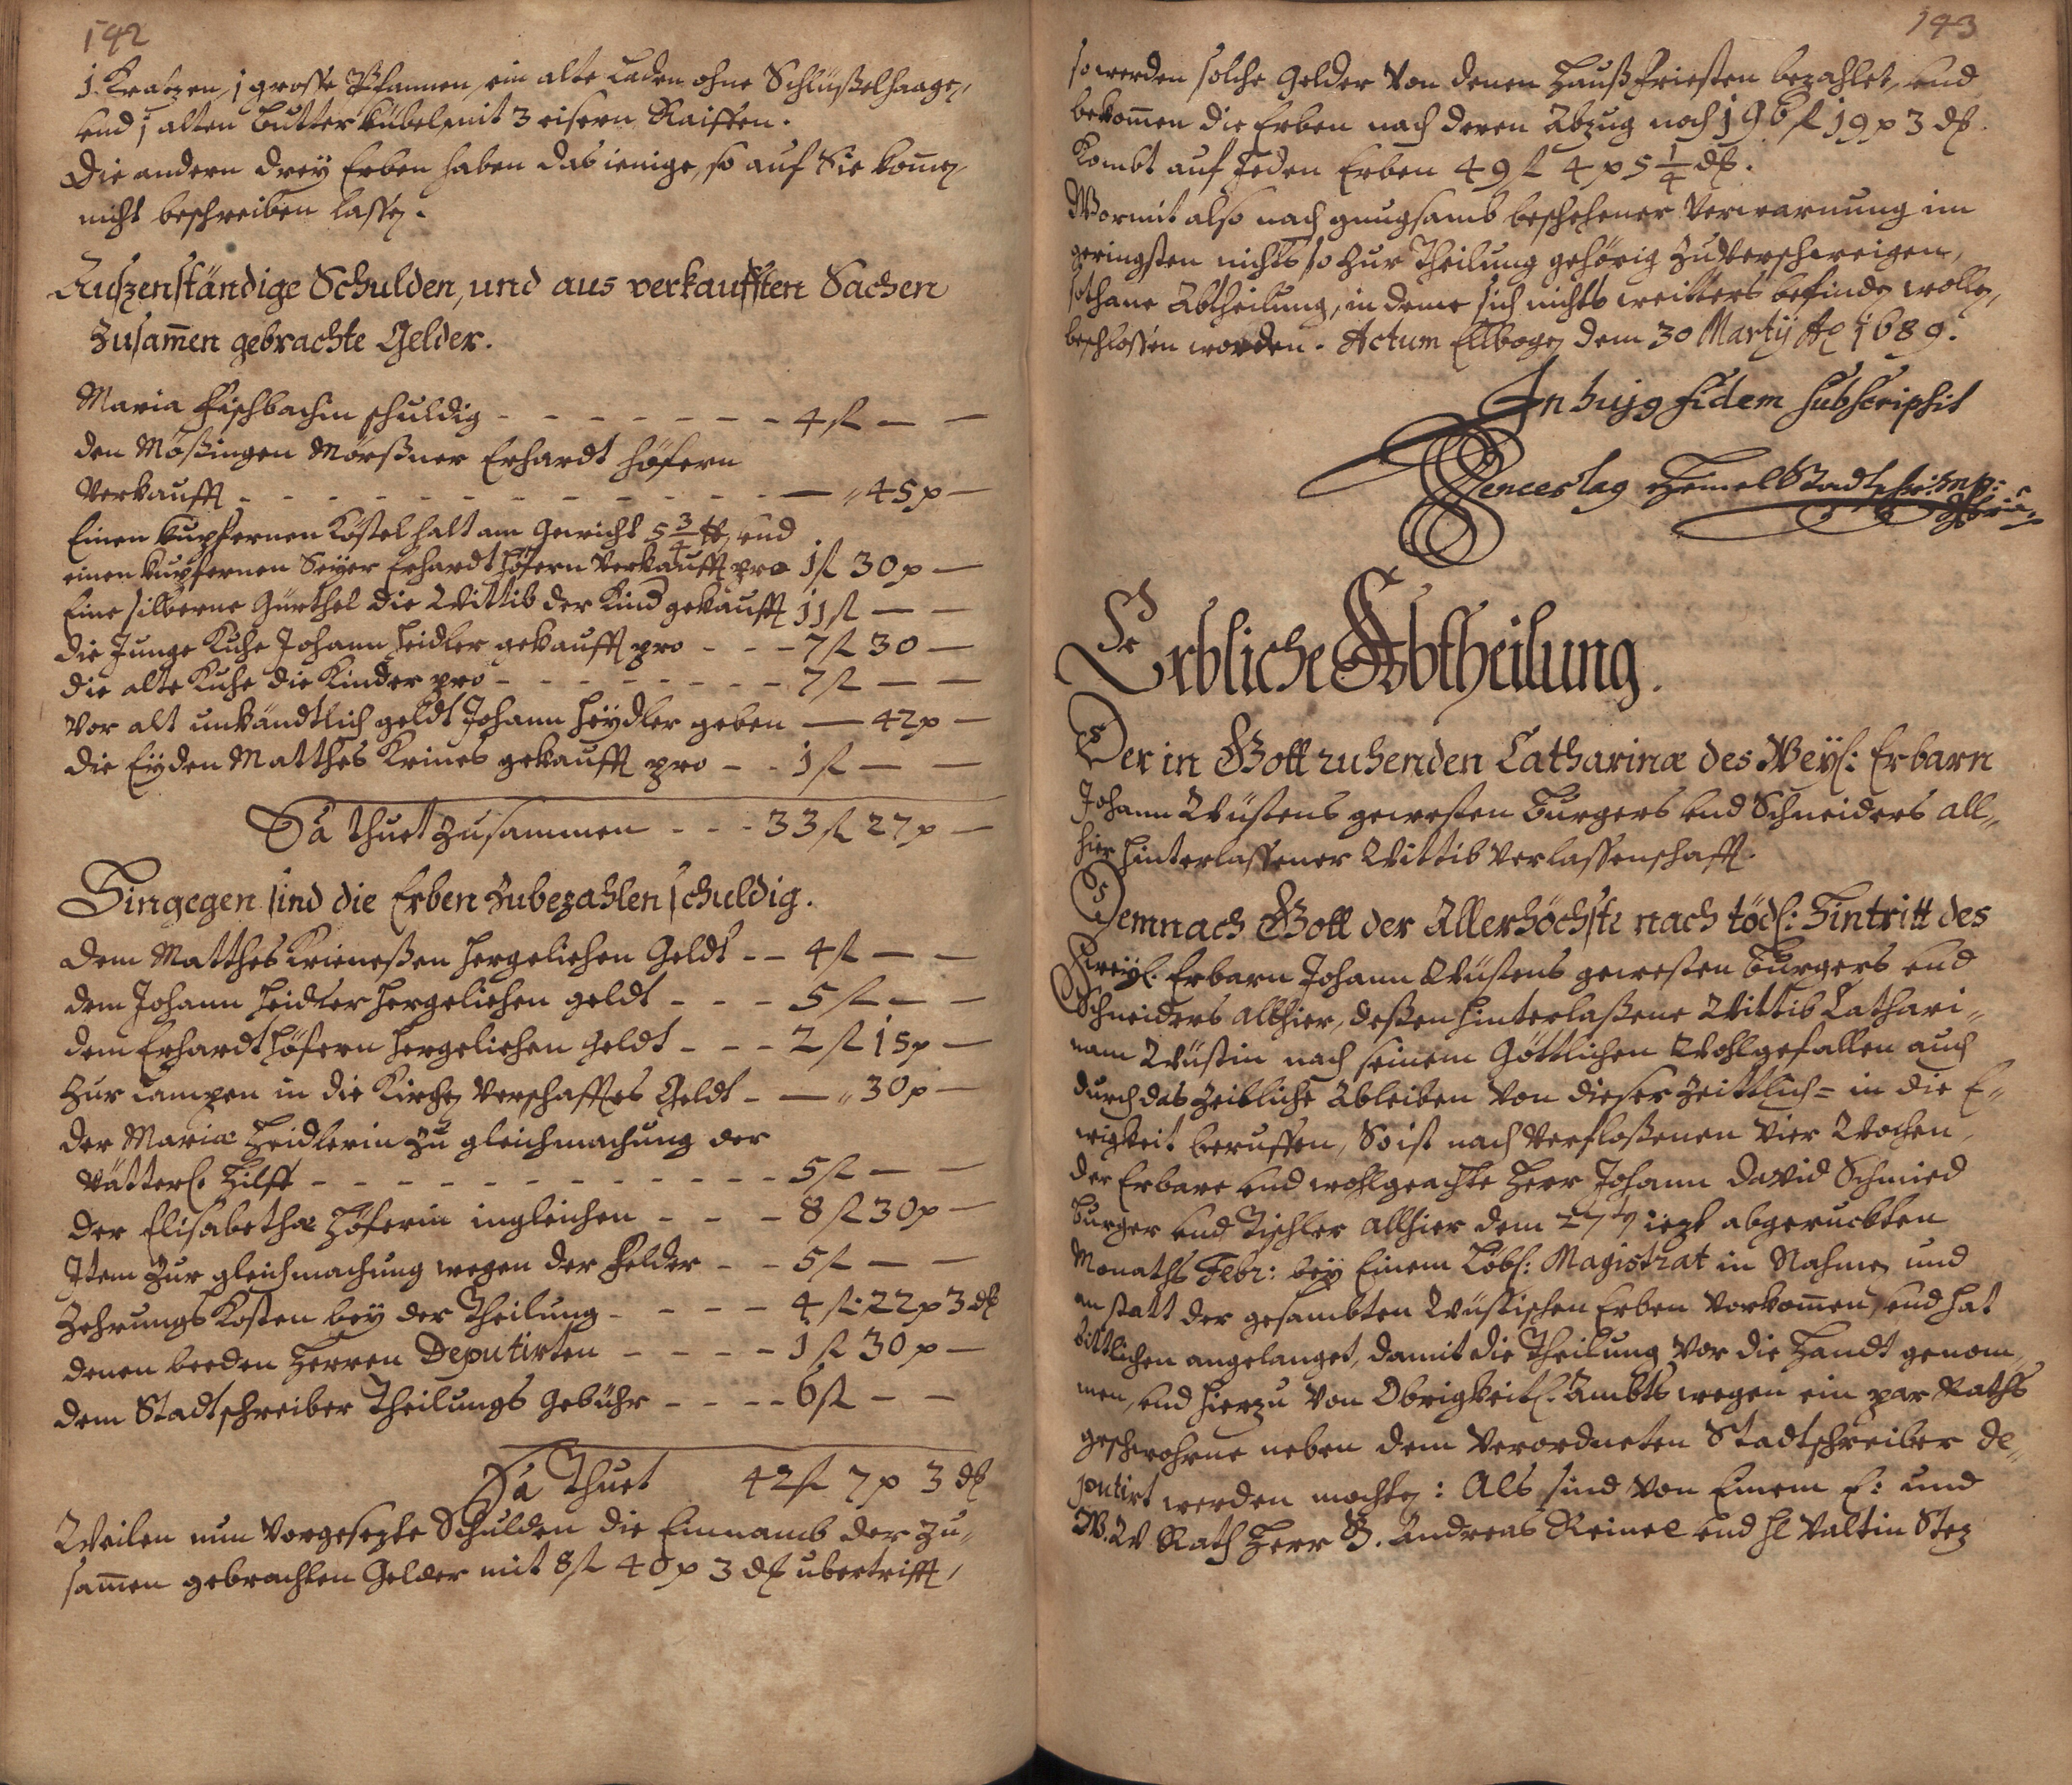 142
1 Kratzen, 1 grosse Pfannen, ein alte Laden ohne Schlüßelhaagen,
und 1 alten Butter Kübel, mit 3 eisern Raiffen.
Die andern drey Erben haben das ienige, so auf Sie kom̄en,
nicht beschreiben lassen.
Auszenständige Schulden, und aus verkaufften Sachen
Zusam̄en gebrachte Gelder.
Maria Fischbachin schuldig - - - - - - - 4 fl — —
den Mößingen Mörßner Erhardt Höfern
verkaufft - - - - - - - - - - - — „ 45 x —
Einen kupfernen Kößel halt am Gewicht 5 3/4 ℔, und
einen kupfernen Seyer Erhardt Höfern verkaufft pro 1 fl 30 x —
Eine silberne Gürthel die Wittib der Kind gekaufft 11 fl — —
die Junge Kuhe Johann Heidler gekaufft pro - - - 7 fl 30 —
die alte Kuhe die Kinder pro - - - - - - - - 7 fl — —
vor alt unkändtlich geldt Johann Heÿdler geben — 42 x —
die Eÿden Matthes Krines gekaufft pro - - 1 fl — —
Sa thuet zusammen - - - 33 fl 27 x —
Hingegen sind die Erben zubezahlen schuldig.
dem Matthes Krieneßen hergeliehen Geldt - - 4 fl — —
dem Johann Heidler hergeliehen geldt - - - 5 fl — —
dem Erhardt Höfern hergeliehen geldt - - - 2 fl 15 x —
zur Lampen in die Kirchen verschafftes Geldt - — „ 30 x —
der Mariæ Heidlerin zu gleichmachung der
vätterl. Hilff - - - - - - - - - - - - 5 fl — —
der Elisabethæ Höferin ingleichen - - - 8 fl 30 x —
Item zur gleichmachung wegen der Felder - - 5 fl — —
Zehrungs Kosten bey der Theilung - - - - 4 fl 22 x 3 ₰
denen beeden Herren Deputirten - - - - 1 fl 30 x —
dem Stadtschreiber Theilungs Gebühr - - - - 6 fl — —
Sa Thuet 42 fl 7 x 3 ₰
Weilen nun vorgesezte Schulden die Einnamb der zu-
sam̄en gebrachten Gelder mit 8 fl 40 x 3 ₰ ubertrifft,
143
so werden solche Gelder von denen Hauß Friesten bezahlet, und
bekom̄en die Erben nach deren Abzug noch 196 fl 19 x 3 ₰.
Kombt auf Jeden Erben 49 fl 4 x 5 1/4 ₰.
Wormit also nach gnugsamb beschehener Verwarnung im
geringsten nichts so zur Theilung gehörig zu verschweigen,
sothane Abtheilung, in deme sich nichts weitters befinden wollen,
beschlossen worden. Actum Ellbogen dem 30 Martÿ Ao 1689.
In hujg fidem subscripsit
Wenceslaq Hemel Stadtschr: mp:
Erbliche Abtheilung.
Der in Gott ruhenden Catharinæ des Weyl: Erbarn
Johann Wüstens gewesten Burgers und Schneiders all-
hier hinterlassener Wittib Verlassenschafft.
Demnach Gott der Allerhöchste nach tödl: Hintritt des
Weyl. Erbarn Johann Wüstens gewesten Burgers und
Schneiders allhier, deßen hinterlaßene Wittib Cathari-
nam Wüstin nach seinem Göttlichen Wohlgefallen auch
durch das zeitliche Ableiben von dieser Zeittlich- in die E-
wigkeit beruffen, So ist nach verfloßenen vier Wochen,
der Erbare und wohlgeachte Herr Johann David Schmied
Burger und Tischler allhier dem 27ten iezt abgeruckten
Monaths Febr: bey Einem Löbl: Magistrat in Nahmen und
an statt der gesambten Wüstischen Erben vorkom̄en, und hat
bittlichen angelanget, damit die Theilung vor die Handt genom-
men, und hierzu von Obrigkeitl. Ambts wegen ein par Raths
geschwohrne neben dem verordneten Stadtschreiber de-
putirt werden mochten: Als sind von Einem E: und
W. W Rath Herr G. Andreas Reinel und H. Valtin Stez